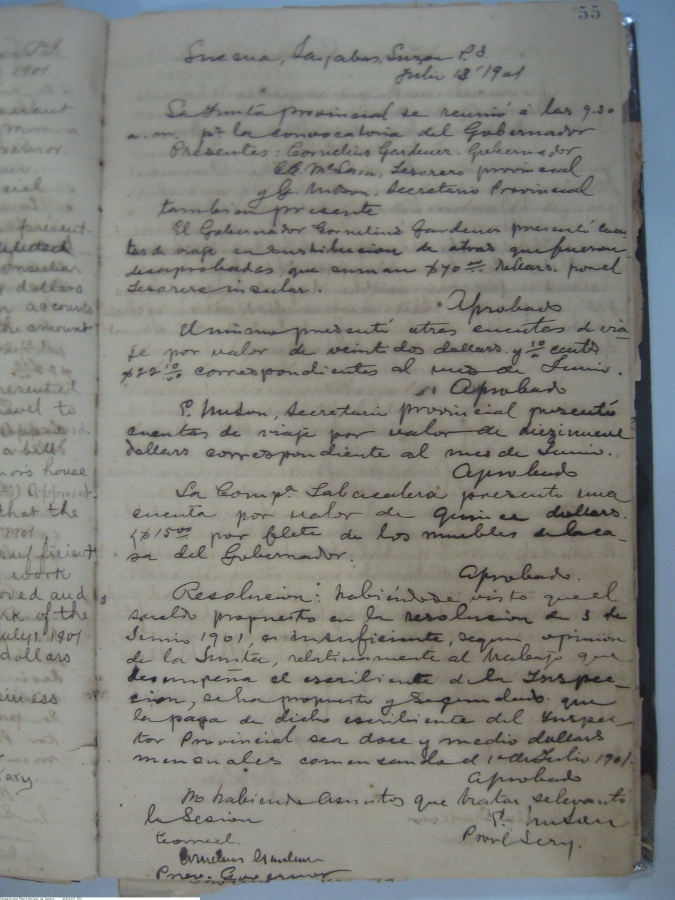 55
Lucena, Tayabas, Luzon P.I.
Julio 13 1901
La Junta provincial se reunió á las 9.30
a.m. pr. la convocatoria del Gobernador
Presentes: Cornelius Gardener - Gobernador
Tesorero provincial
y G. Nieson, Secretario Provincial
tambien presente
El Gobernador Cornelius Gardener presentó cuen-
tas de viaje en sustitucion de otras que fueron
desaprobadas, que suman $70 00 dollars. por el
Tesorero insular.
Aprobado
El mismo presentó otras cuentas de via-
je por valor de veintidos dollars y 10 cents
$22 10 correspondientes al mes de Junio.
Aprobado
P. Nieson, Secretario provincial presentó
cuentas de viaje por valor de diezinueve
dollars correspondiente al mes de Junio.
Aprobado
La Compª Tabacalera presento una
cuenta por valor de quince dollars.
($15 00 por flete de los muebles de la ca-
sa del Gobernador.
Aprobado.
Resolucion: habiéndose visto que el
sueldo propuesto en la resolucion de 3 de
Junio 1901, es insuficiente, segun opinion
de la Junta, relativamente al trabajo que
desempeña el escribiente de la Inspec-
cion, se ha propuesto y segundado que
la paga de dicho escribiente del Inspec-
tor Provincial sea doce y medio dollars
mensuales comensando el 1º de Julio 1901.
Aprobado
No habiendo asuntos que tratar, se levantó
la Sesion
P. Nieson
Provl Secy.
Correct.
Cornelius Gardener
Prov. Governor
1901
present-
dollars
accounts
the amount
presented
to
a bill
house
that the
1901
sufficient
work
and
of the
July 1, 1901
dollars